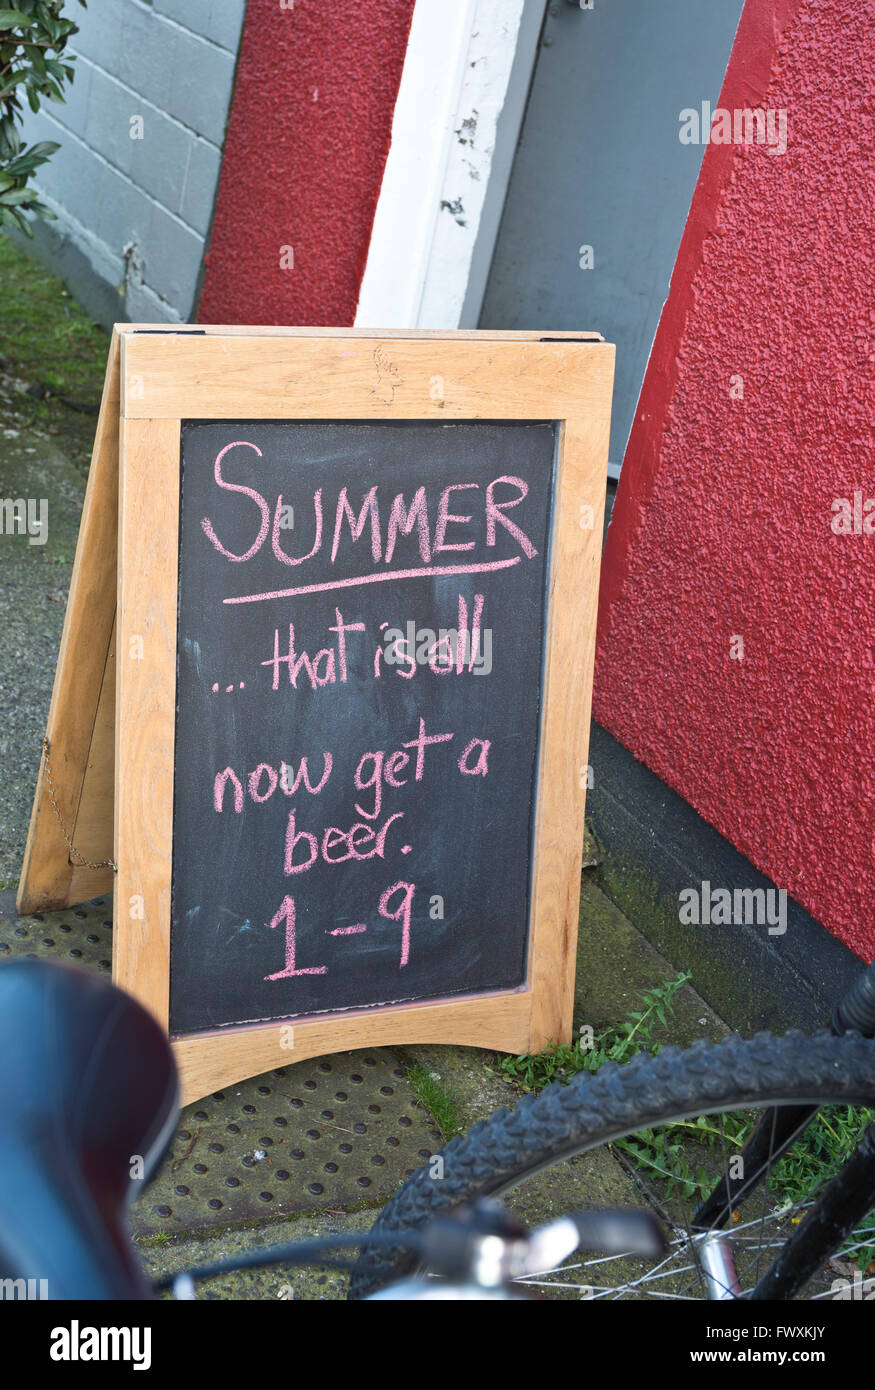 SUMMER
... that is all
now get a
beer.
1-9
alamy
alamy
alamy
Image ID: FWXKJY
www.alamy.com